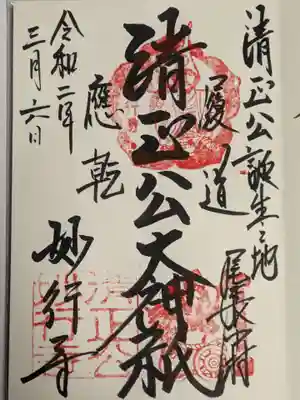 清正公誕生之地
履道
應乾
清正公大神祇
令和二年
三月六日
妙行寺